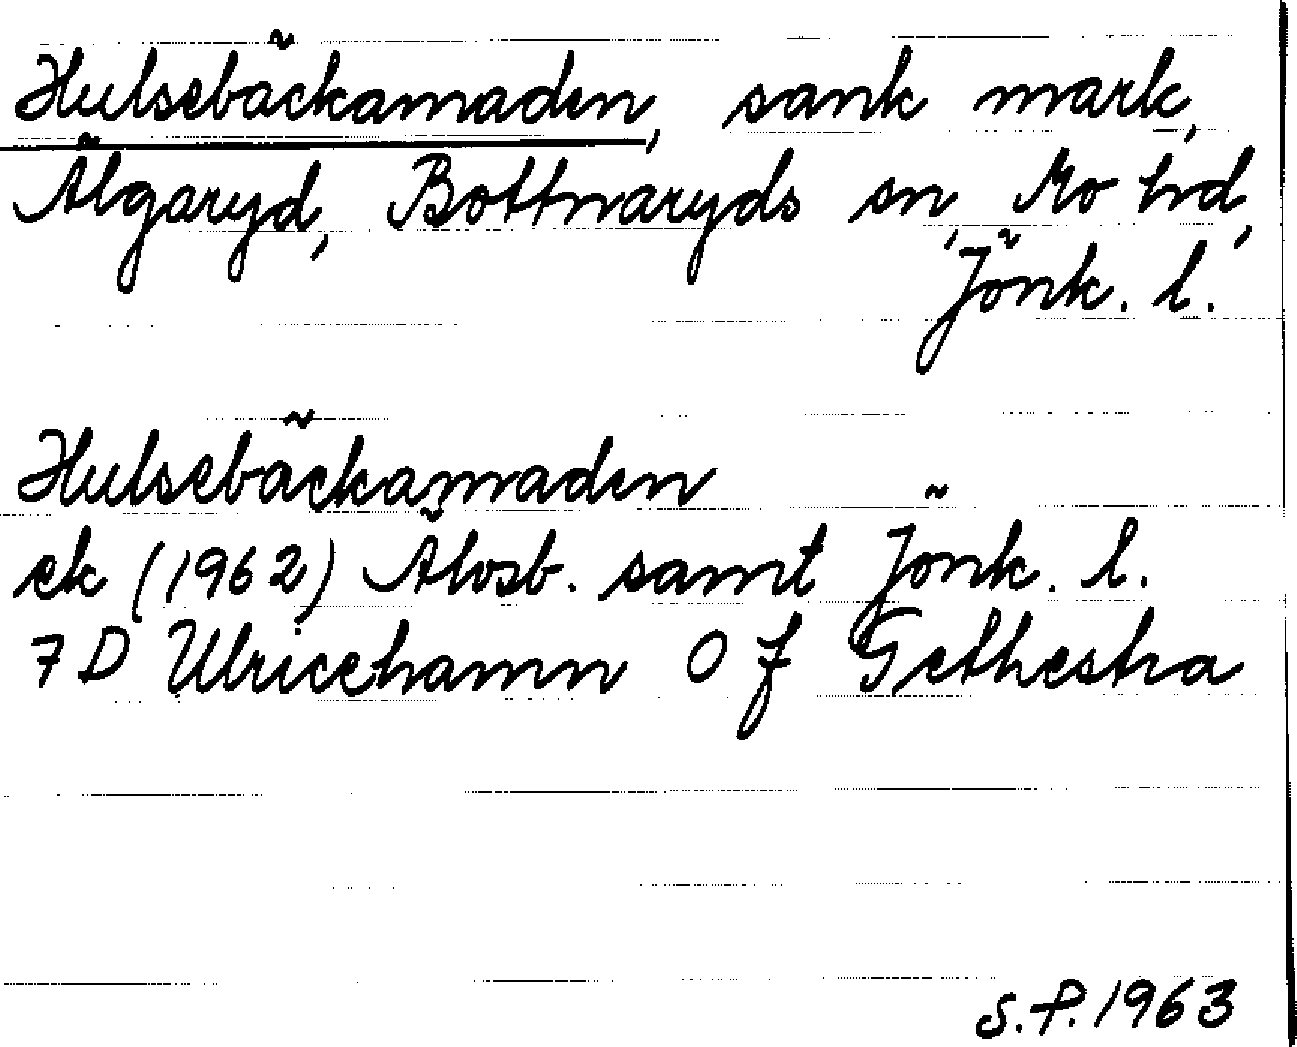 Hulsebäckamaden, sank mark,
Älgaryd, Bottnaryds sn, Mo hd,
Jönk. l.
Hulsebäckamaden
ek (1962) Älvsb. samt Jönk. l.
7 D Ulricehamn 0 f Grethestra
S.P. 1963